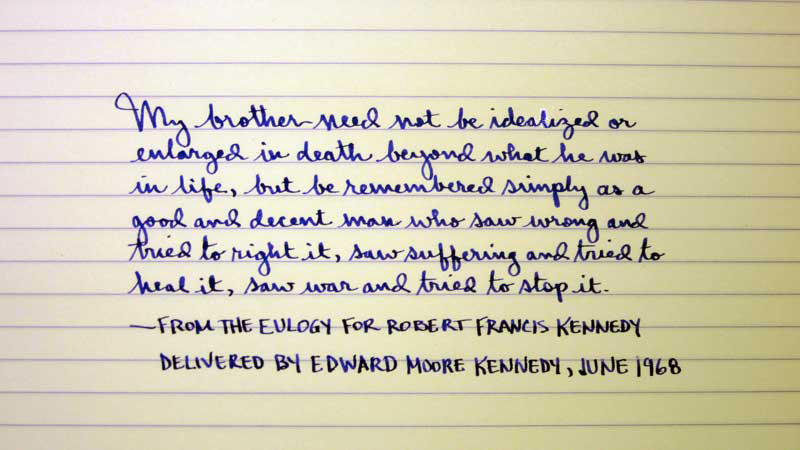 My brother need not be idealized or
enlarged in death beyond what he was
in life, but be remembered simply as a
good and decent man who saw wrong and
tried to right it, saw suffering and tried to
heal it, saw war and tried to stop it.
—FROM THE EULOGY FOR ROBERT FRANCIS KENNEDY
DELIVERED BY EDWARD MOORE KENNEDY, JUNE 1968